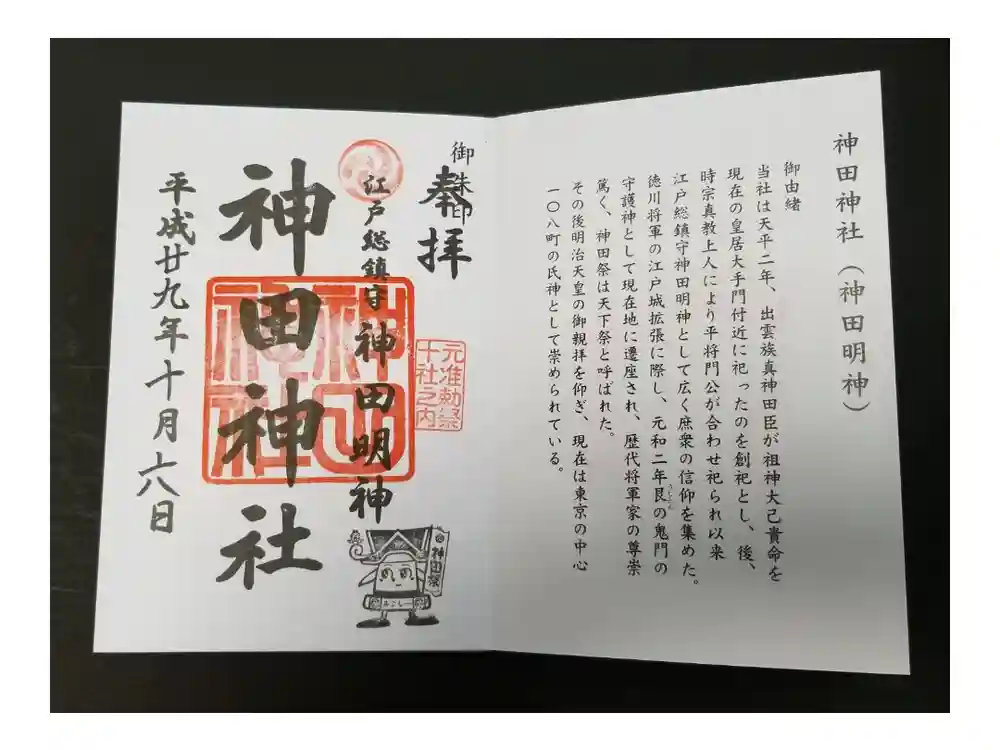 神田神社（神田明神）
御由緒
当社は天平二年、出雲族真神田臣が祖神大己貴命を
現在の皇居大手門付近に祀ったのを創祀とし、後、
時宗真教上人により平将門公が合わせ祀られ以来
江戸総鎮守神田明神として広く庶衆の信仰を集めた。
徳川将軍の江戸城拡張に際し、元和二年艮の鬼門の
守護神として現在地に遷座され、歴代将軍家の尊崇
篤く、神田祭は天下祭と呼ばれた。
その後明治天皇の御親拝を仰ぎ、現在は東京の中心
一〇八町の氏神として崇められている。
御朱印
奉拝
元准勅祭
十社之内
江戸総鎮守 神田明神
神田神社
神田
神社
平成廿九年十月六日
神田祭
みこしー